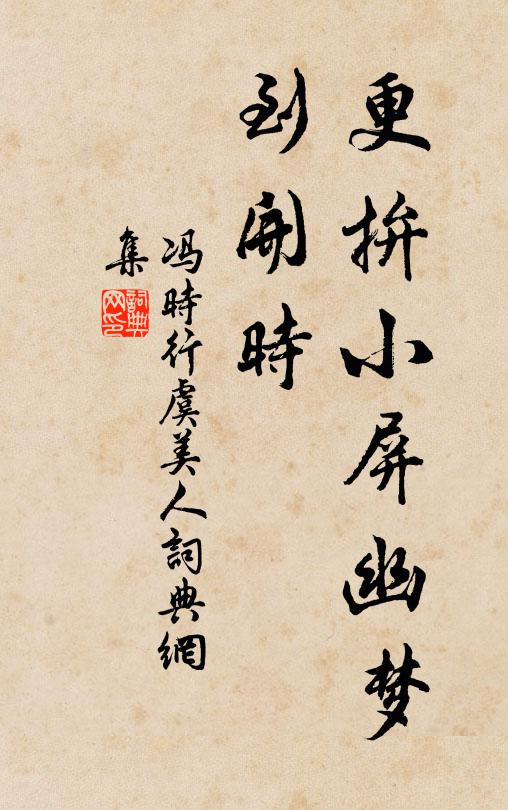 更拚小屏幽梦
到開時
冯時行虞美人詞典網
集
詞典
网印